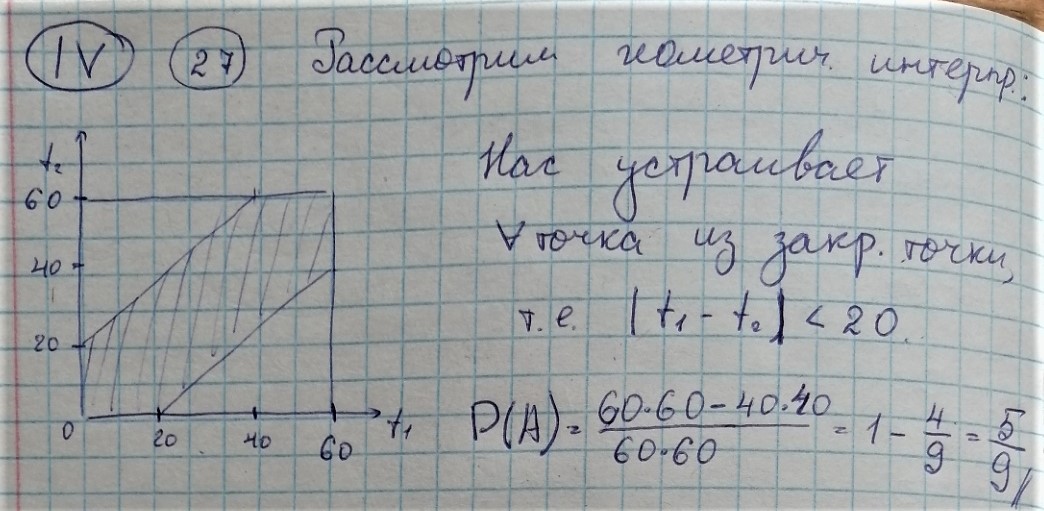 IV 27 Рассмотрим геометрич. интерпр.:
t₂
60
40
20
0
20 40 60
t₁
Нас устраивает
∀ точка из закр. точки,
т.е. |t₁ - t₂| < 20.
P(A) = (60·60 - 40·40)/(60·60) = 1 - 4/9 = 5/9 //